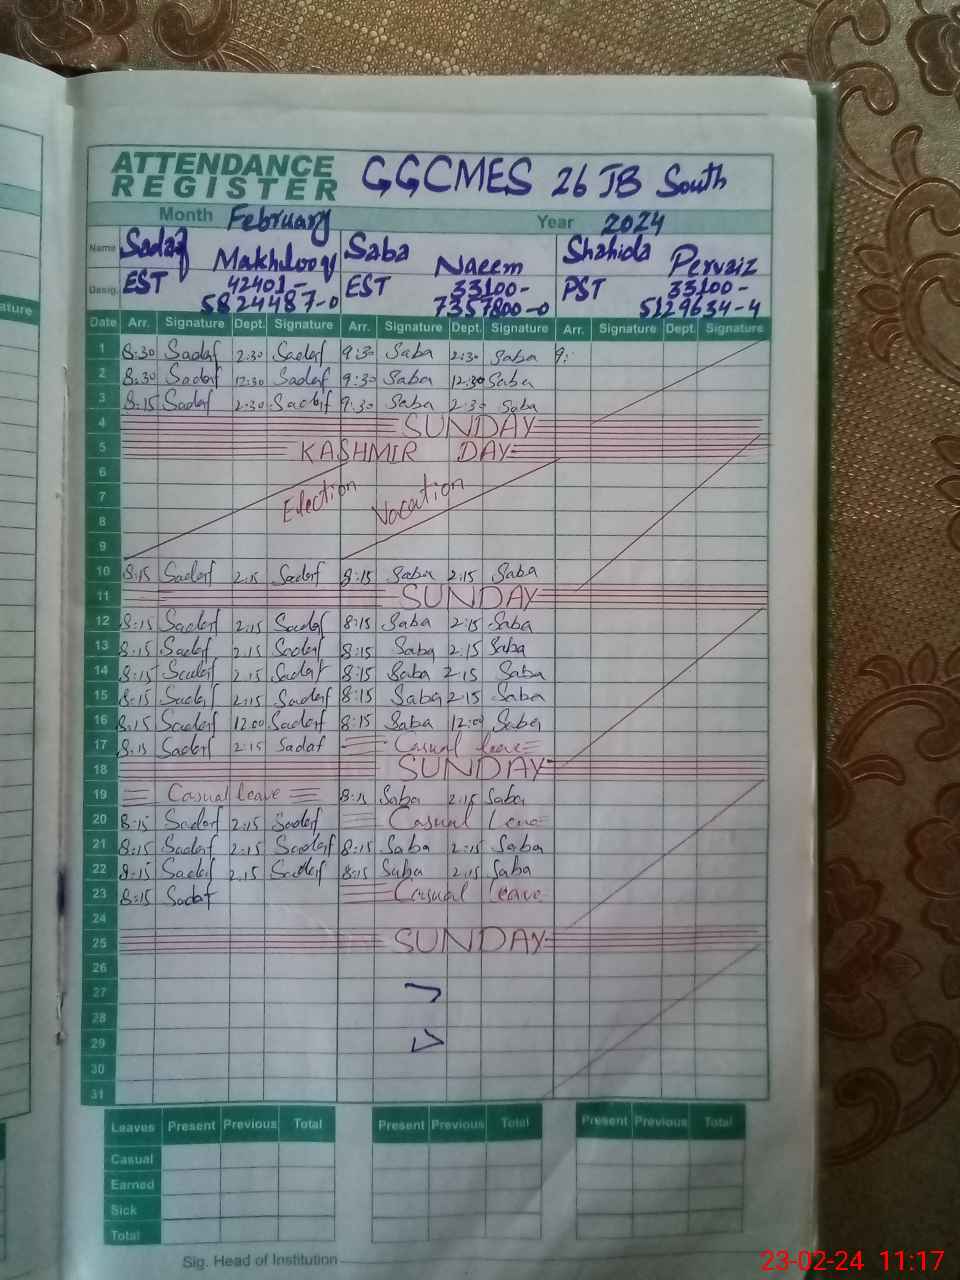 ATTENDANCE REGISTER GGCMES 26 JB South
Month February Year 2024
Name Sadaf Makhdoom Saba Naeem Shahida Pervaiz
Desig. EST 42401-5824487-0 EST 33100-7357800-0 PST 33100-5129634-4
Date Arr. Signature Dept. Signature Arr. Signature Dept. Signature Arr. Signature Dept. Signature
1 8:30 Sadaf 2:30 Sadaf 9:30 Saba 2:30 Saba 9:
2 8:30 Sadaf 12:30 Sadaf 9:30 Saba 12:30 Saba
3 8:15 Sadaf 2:30 Sadaf 9:30 Saba 2:30 Saba
4 SUNDAY
5 KASHMIR DAY
6
7 Election Vacation
8
9
10 8:15 Sadaf 2:15 Sadaf 8:15 Saba 2:15 Saba
11 SUNDAY
12 8:15 Sadaf 2:15 Sadaf 8:15 Saba 2:15 Saba
13 8:15 Sadaf 2:15 Sadaf 8:15 Saba 2:15 Saba
14 8:15 Sadaf 2:15 Sadaf 8:15 Saba 2:15 Saba
15 8:15 Sadaf 2:15 Sadaf 8:15 Saba 2:15 Saba
16 8:15 Sadaf 12:00 Sadaf 8:15 Saba 12:00 Saba
17 8:15 Sadaf 2:15 Sadaf Casual leave
18 SUNDAY
19 Casual leave 8:15 Saba 2:15 Saba
20 8:15 Sadaf 2:15 Sadaf Casual
21 8:15 Sadaf 2:15 Sadaf 8:15 Saba 2:15 Saba
22 8:15 Sadaf 2:15 Sadaf 8:15 Saba 2:15 Saba
23 8:15 Sadaf Casual leave
24
25 SUNDAY
26
27
28
29
30
31
Leaves Present Previous Total Present Previous Total Present Previous Total
Casual
Earned
Sick
Total
Sig. Head of Institution
23-02-24 11:17